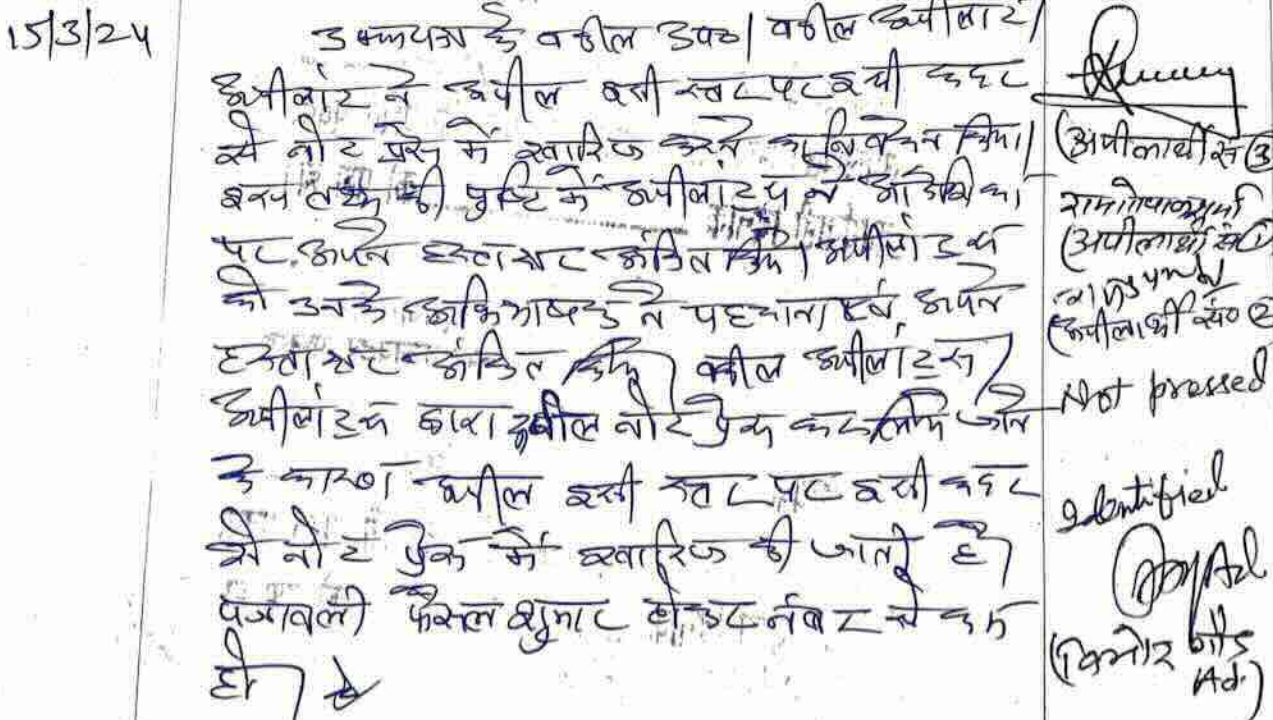 15/3/24
उभयपक्ष के वकील उप०। वकील अपीलांट/
अपीलांट ने अपील इसी स्तर पर इसी कदर
से नोट प्रेस में खारिज करने का निवेदन किया।
इस तथ्य की पुष्टि में अपीलांट्स ने आदेशिका
पर अपने हस्ताक्षर अंकित किये। अपीलांट्स
को उनके अभिभाषक ने पहचाना एवं अपने
हस्ताक्षर अंकित किये। वकील अपीलांट्स/
अपीलांट्स द्वारा अपील नोट प्रेस कर लिये जाने
के कारण अपील इसी स्तर पर इसी कदर
से नोट प्रेस में खारिज की जाती है।
पत्रावली फैसल शुमार होकर नंबर से कम
हो।
(अपीलार्थी सं ③
(अपीलार्थी सं ①
(अपीलार्थी सं० ②
Not pressed
Identified
(किशोर गौड
Ad.)